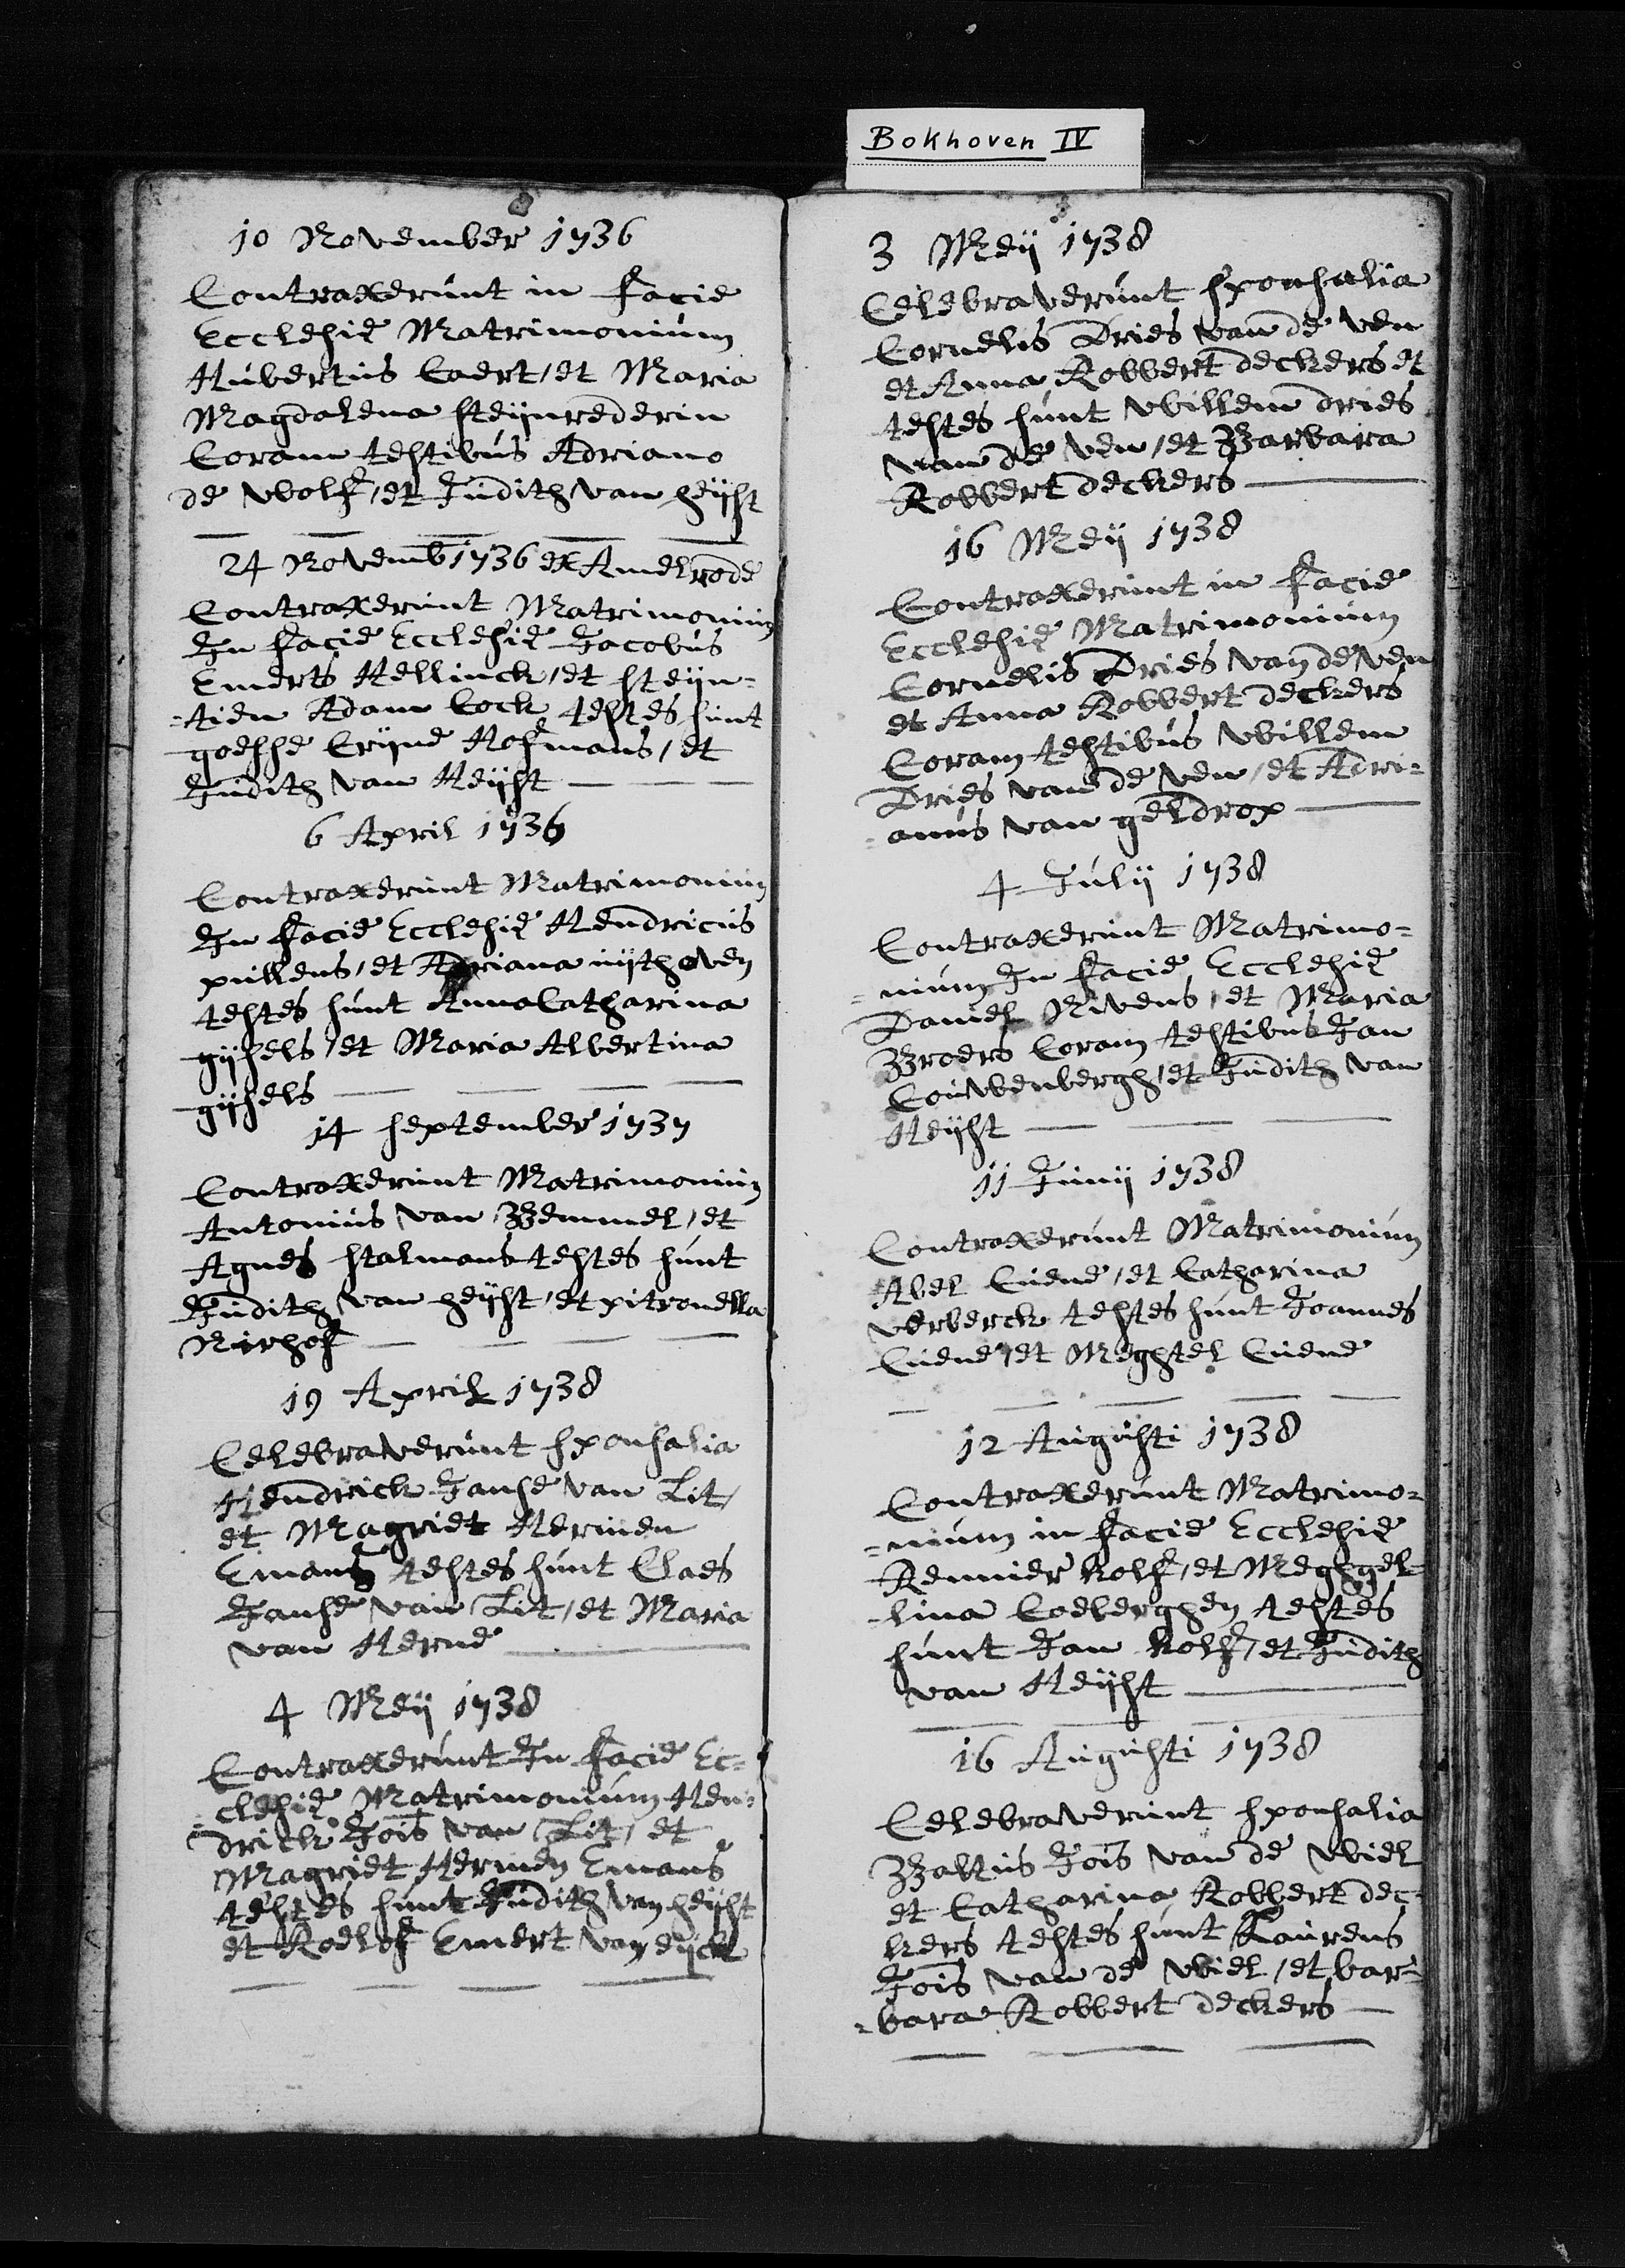 Bokhoven IV
10 November 1736
Contraxerunt in facie
Ecclesię Matrimonium
Hubertus Caert, et Maria
Magdalena steijnrederin
Coram testibus Adriano
de Wolff, et Judith van heijst
24 Novemb 1736 ex Amelrode
Contraxerunt Matrimonium
In facie Ecclesię Jacobus
Emerts Hellinck, et steijn=
=tien Adam Cock testes sunt
goesse Crijne Hofmans, et
Judith van Heijst
6 April 1736
Contraxerunt Matrimonium
In facie Ecclesię Hendricus
pullens, et Adriana uijthoven
testes sunt Anna Catharina
gijsels, et Maria Albertina
gijsels
14 september 1737
Contraxerunt Matrimonium
Antonius van Bemmel, et
Agnes stalmans testes sunt
Judith van heijst, et pitronella
Nirhof
19 April 1738
Celebraverunt sponsalia
Hendrick Janse van Lit,
et Magriet Hermen
Emans testes sunt Claes
Janse van Lit, et Maria
van Herne
4 Meij 1738
Contraxerunt In facie Ec=
=clesię Matrimonium Hen=
drick Jois van Lit, et
Magriet Hermen Emans
testes sunt Judith van heijst
et Roelof Emert van eijck
3 Meij 1738
Celebraverunt sponsalia
Cornelis Dries van de ven
et Anna Robbert deckers et
testes sunt Willem dries
van de ven, et Barbara
Robbert deckers
16 Meij 1738
Contraxerunt in facie
Ecclesię Matrimonium
Cornelis Dries van de ven
et Anna Robbert deckers
Coram testibus Willem
Dries van de ven, et Adri=
=anus van geldrop
4 Julij 1738
Contraxerunt Matrimo=
=nium In facie Ecclesię
Daniel Nivens, et Maria
Broers Coram testibus Jan
Couwenbergh, et Judith van
Heijst
11 Junij 1738
Contraxerunt Matrimonium
Abel Cuene, et Catharina
verberck testes sunt Joannes
Cuene, et Meghtel Cuene
12 Augusti 1738
Contraxerunt Matrimo=
=nium in facie Ecclesię
Remmier Kolf, et Meghgel=
=lina Coeberghen testes
sunt Jan Kolf, et Judith
van Heijst
16 Augusti 1738
Celebraverunt sponsalia
Baltus Jois van de Wiel
et Catharina Robbert dec=
kers testes sunt Laurens
Jois van de Wiel, et bar=
=bara Robbert deckers